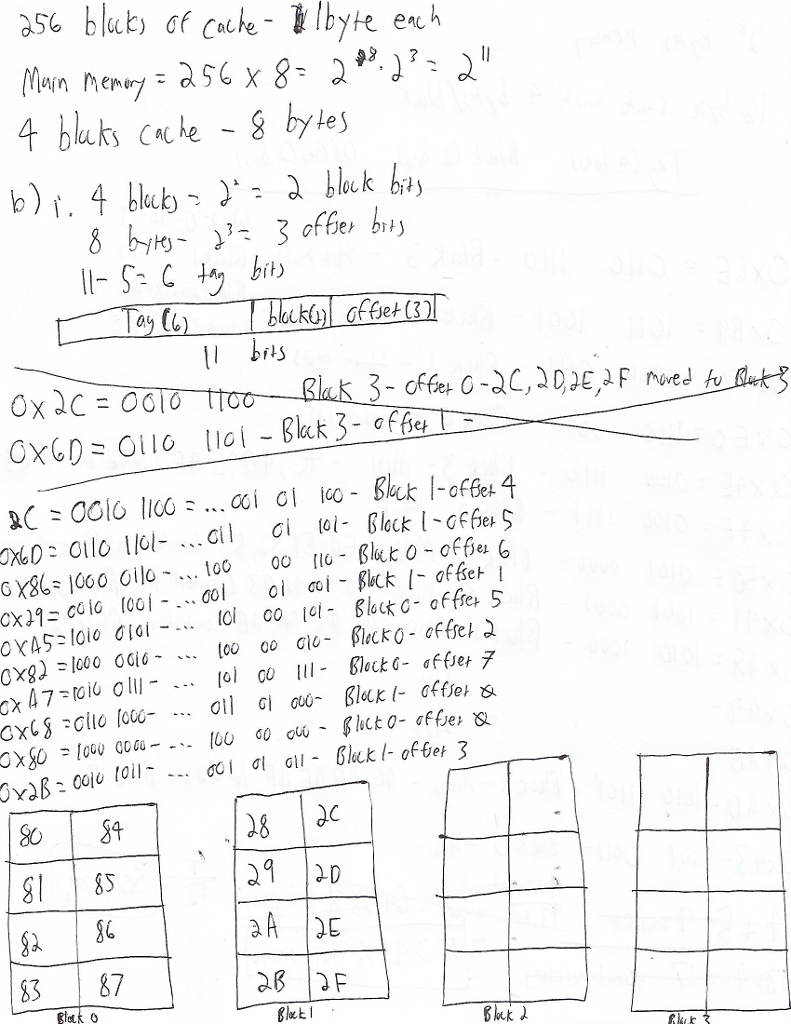 256 blocks of cache - 1byte each
Main memory = 256 x 8 = 2^8 · 2^3 = 2^11
4 blocks cache - 8 bytes
b) i. 4 blocks = 2^2 = 2 block bits
8 bytes - 2^3 = 3 offset bits
11 - 5 = 6 tag bits
Tag (6) block(2) offset (3)
11 bits
0x2C = 0010 1100 - Block 3 - offset 0 - 2C, 2D, 2E, 2F moved to Block 3
0x6D = 0110 1101 - Block 3 - offset 1 =
2C = 0010 1100 = ... 001 01 100 - Block 1 - offset 4
0x6D = 0110 1101 - ... 011 01 101 - Block 1 - offset 5
0x86 = 1000 0110 - ... 100 00 110 - Block 0 - offset 6
0x29 = 0010 1001 - ... 001 01 001 - Block 1 - offset 1
0xA5 = 1010 0101 - ... 101 00 101 - Block 0 - offset 5
0x82 = 1000 0010 - ... 100 00 010 - Block 0 - offset 2
0xA7 = 1010 0111 - ... 101 00 111 - Block 0 - offset 7
0x68 = 0110 1000 - ... 011 01 000 - Block 1 - offset 0
0x80 = 1000 0000 - ... 100 00 000 - Block 0 - offset 0
0x2B = 0010 1011 - ... 001 01 011 - Block 1 - offset 3
80 84
81 85
82 86
83 87
Block 0
28 2C
29 2D
2A 2E
2B 2F
Block 1
Block 2
Block 3